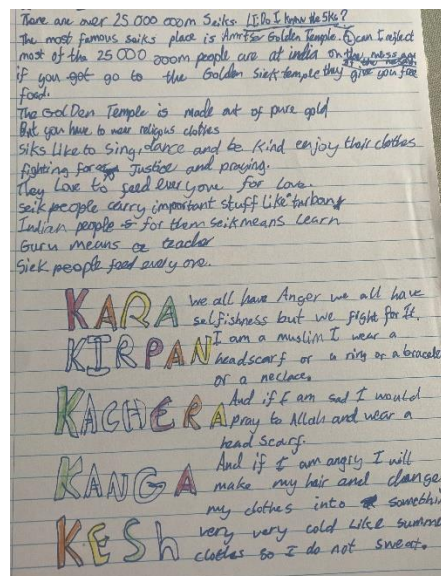 There are over 25 000 000m Seiks. LI: Do I know the Sks?
The most famous seiks place is Amrtser Golden Temple. can I reflect
most of the 25 000 000m people are at india on
if you go to the Golden Siek temple they give you free
food.
The GolDen Temple is made out of pure gold
But you have to wear religous clothes
Siks Like to Sing, dance and be kind enjoy their clothes
fighting for Justice and praying.
They Love to feed every one for love.
Seik people carry important stuff like "turban"
Indian people for them seik means Learn
Guru means teacher
Siek people feed every one.
KARA we all have Anger we all have
selfishness but we fight for It.
KIRPAN I am a muslim I wear a
headscarf or a ring or a bracelet
or a neclace.
KACHERA And if I am sad I would
pray to Allah and wear a
head scarf.
KANGA And if I am angry I will
make my hair and change
my clothes into somethin
KESH very very cold Like summe
clothes so I do not sweat.